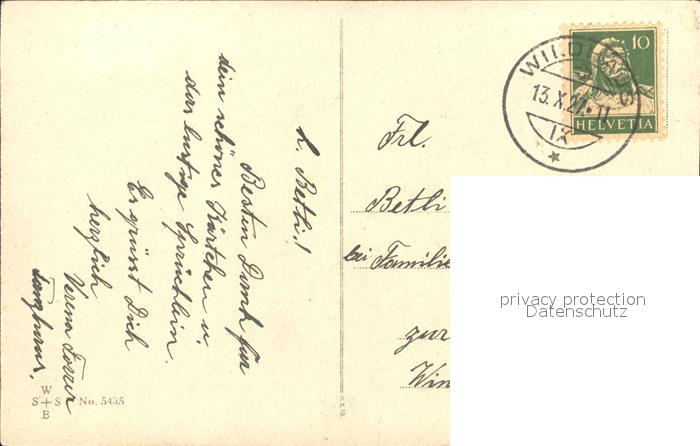 L. Betli!
Besten Dank für
dein schönes Kärtchen u.
das lustige Sprüchlein.
Es grüsst Dich
herzlich
Verena Forrer
W
S + S No. 5435
B
Frl.
Betli
bei Familie
zur
Win
WILD
13.X.27.-11
IX
10
HELVETIA
privacy protection
Datenschutz